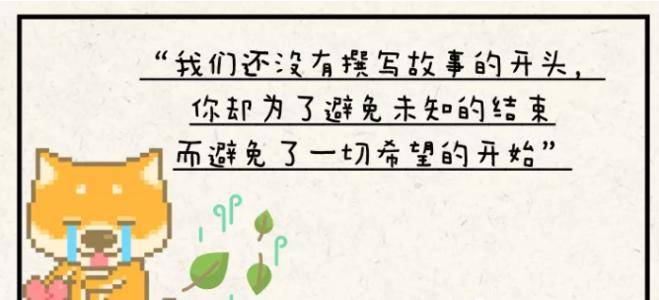 “我们还没有撰写故事的开头，
你却为了避免未知的结束
而避免了一切希望的开始”